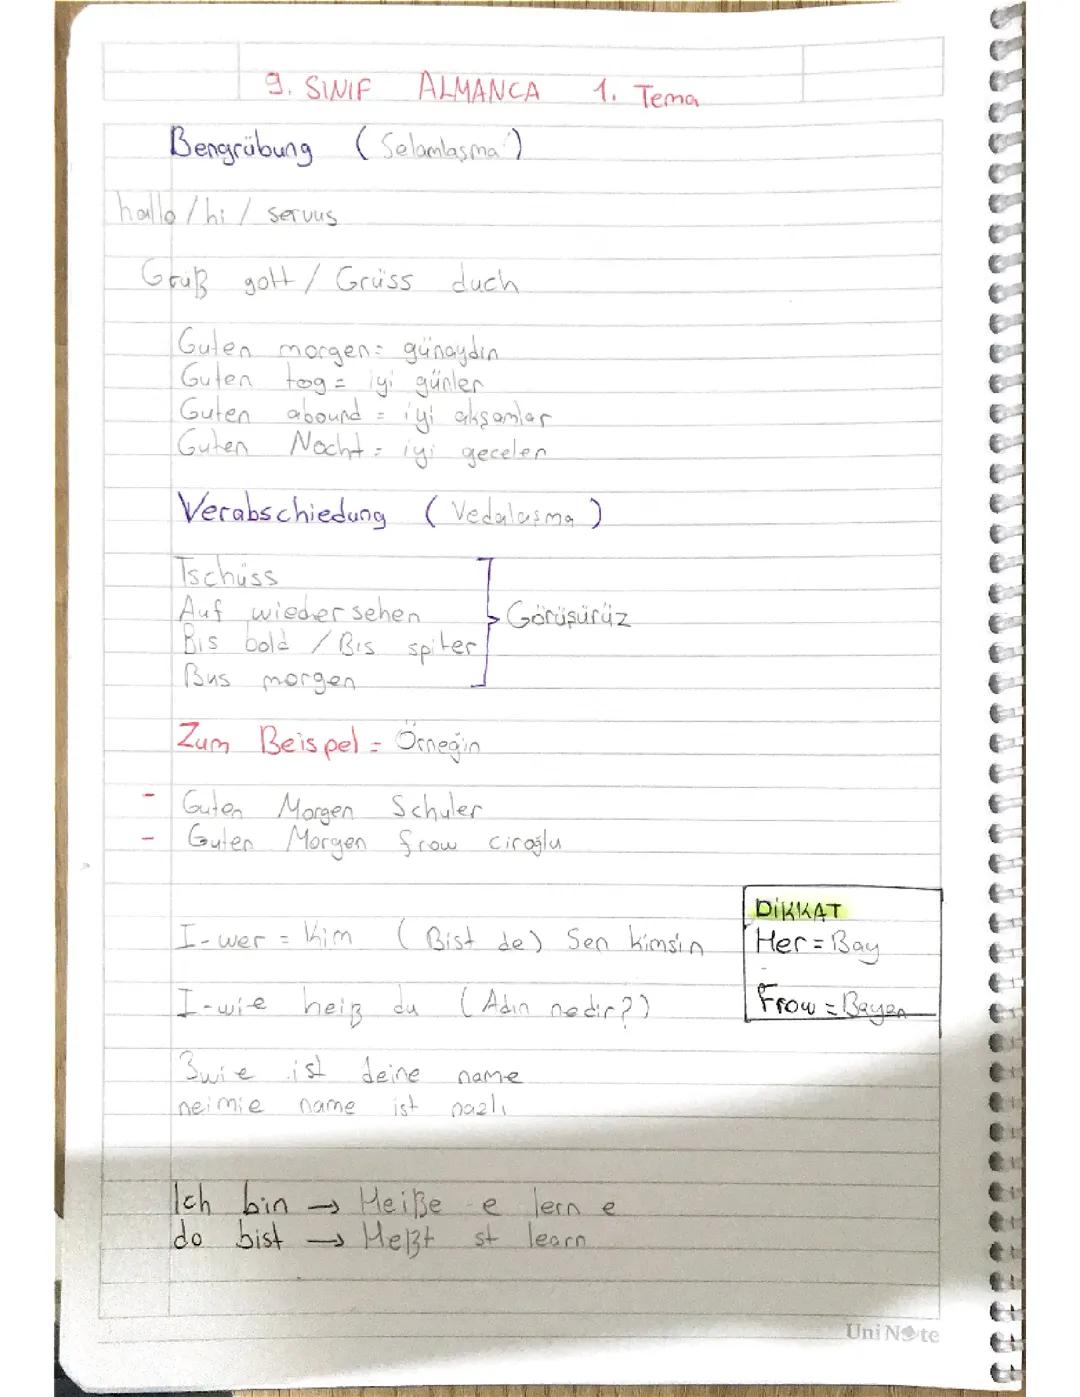 9. SINIF ALMANCA 1. Tema
Bengrübung (Selamlaşma)
hallo / hi / servus
Gruß gott / Grüss duch
Guten morgen = günaydın
Guten tog = iyi günler
Guten abound = iyi akşamlar
Guten Nacht = iyi geceler
Verabschiedung (Vedalaşma)
Tschüss
Auf wieder sehen
Bis bold / Bis spiter
Bus morgen
Görüşürüz
Zum Beispel = Örneğin
- Guten Morgen Schuler
- Guten Morgen frow ciroğlu
DİKKAT
Her = Bay
Frow = Bayan
I-wer = Kim (Bist de) Sen kimsin
I-wie heiß du (Adın nedir?)
3wie ist deine name
neimie name ist nazlı
Ich bin → Heiße e lern e
do bist → Heßt st learn
UniNote